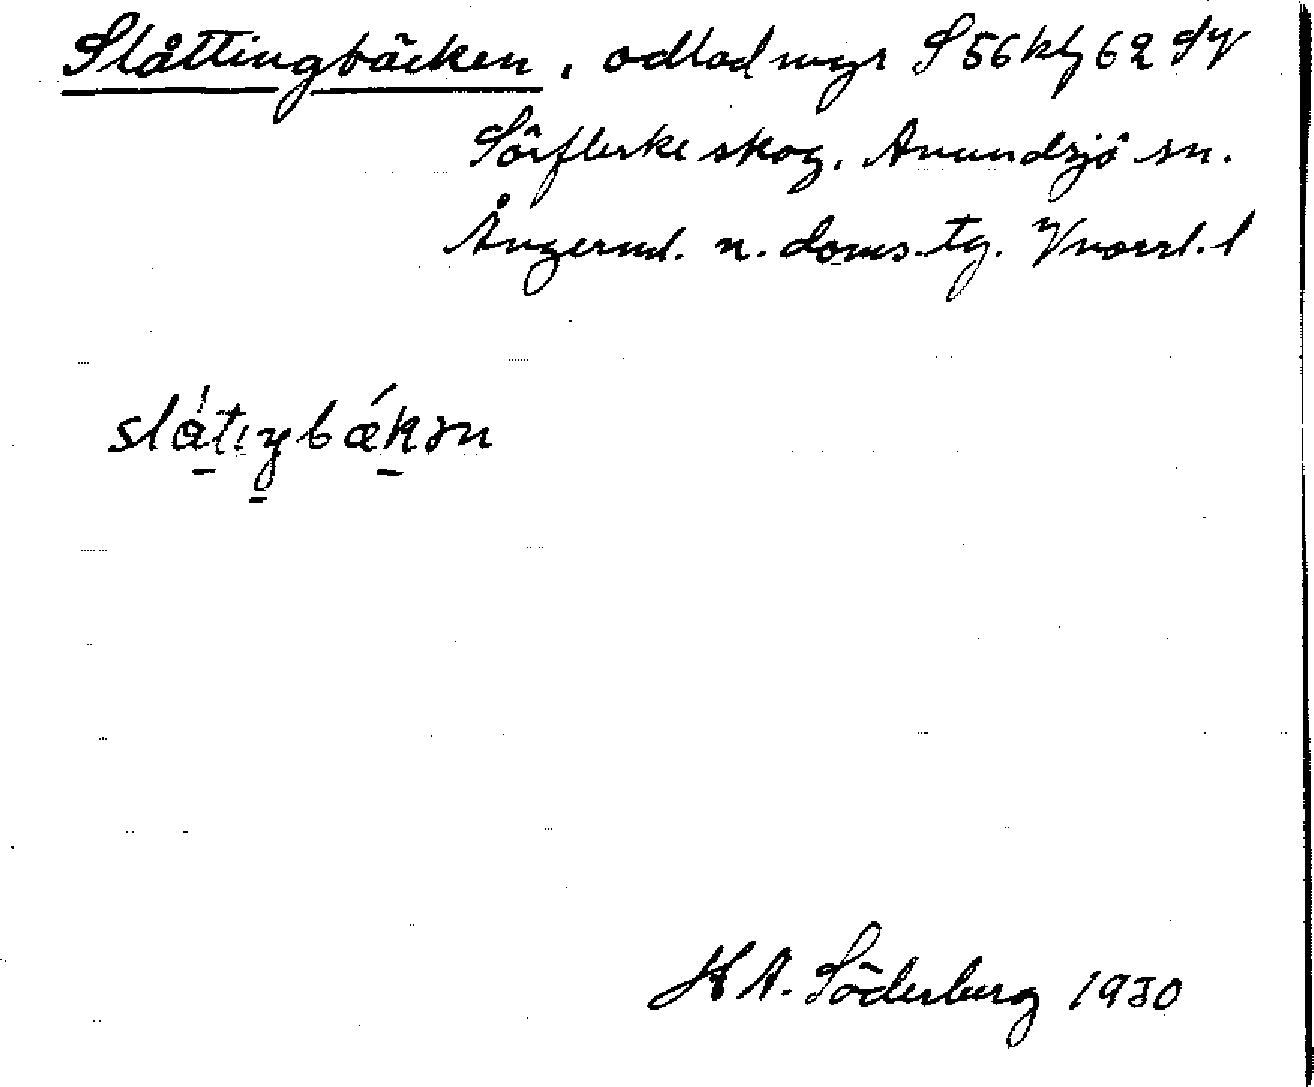 Slåttingbäcken, odlad myr S 56 kbl 62 SV
Sörflerke skog. Anundsjö sn.
Ångerml. n. doms.tg. Vnorrl. l
slátiŋbákən
K A. Söderberg 1930